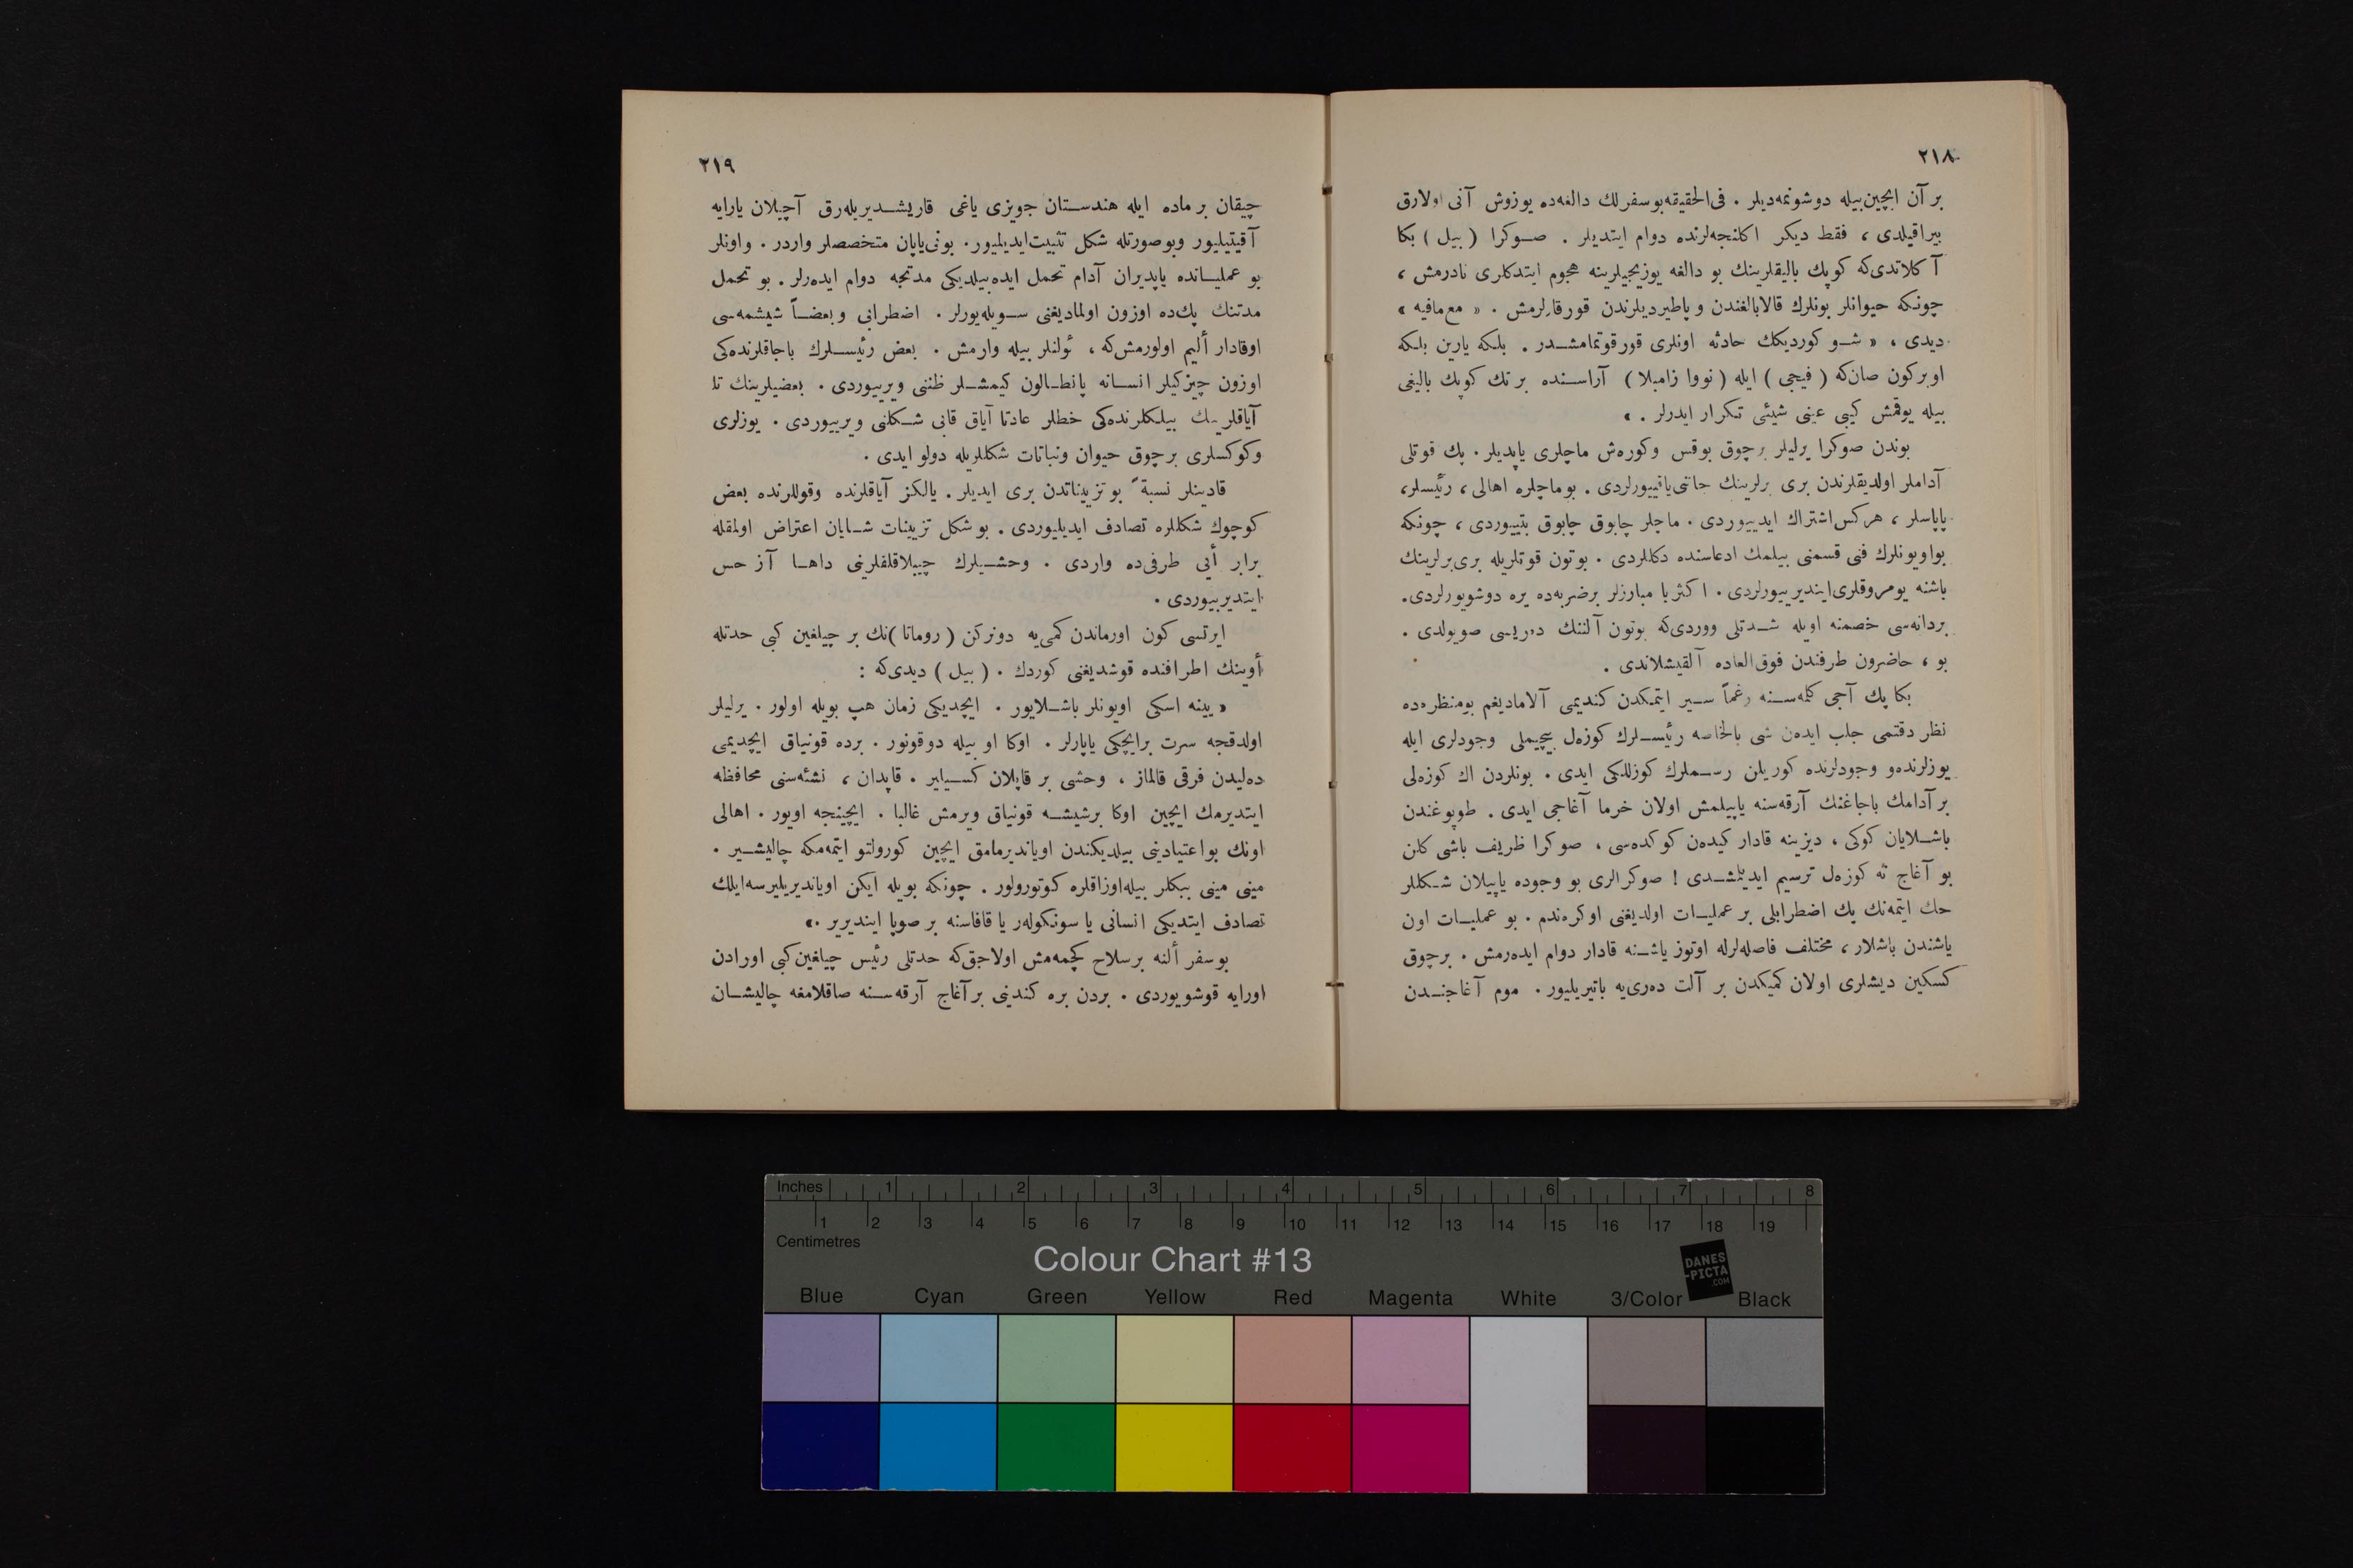 ٢١٨
بر آن ایچین‌بیله دوشونمه‌دیلر . فی‌الحقیقه‌بوسفرلك دالغه‌ده یوزوش آنی اولارق
بیراقیلدی ، فقط دیكر اكلنجه‌لرنده دوام ایتدیلر . صوكرا ( بیل ) بكا
آكلاتدی‌كه كوپك بالیقلرینك بو دالغه یوزیجیلرینه هجوم ایتدكلری نادرمش ،
چونكه حیوانلر بونلرك قالابالغندن و پاطیردیلرندن قورقارلرمش . « مع‌مافیه »
دیدی ، « شو كوردیكك حادثه اونلری قورقوتمامشدر . بلكه یارین بلكه
اوبركون صان‌كه ( فیجی ) ایله ( نووا زامبلا ) آراسنده بر تك كوپك بالیغی
بیله یوقمش كیبی عینی شیئی تكرار ایدرلر . »
بوندن صوكرا یرلیلر برچوق بوقس وكوره‌ش ماچلری یاپدیلر . پك قوتلی
آداملر اولدیقلرندن بری برلرینك جاننی‌یاقیبورلردی . بوماچلره اهالی ، رئیسلر،
پاپاسلر ، هركس‌اشتراك ایدییوردی . ماچلر چابوق چابوق بتییوردی ، چونكه
بواویونلرك فنی قسمنی بیلمك ادعاسنده دكللردی . بوتون قوتلریله بری‌برلرینك
باشنه یومروقلری‌ایندیرییورلردی . اكثریا مبارزلر برضربه‌ده یره دوشویورلردی.
بردانه‌سی خصمنه اویله شدتلی ووردی‌كه بوتون آلننك ده‌ریسی صویولدی .
بو ، حاضرون طرفندن فوق‌العاده آلقیشلاندی .
بكا پك آجی كله‌سنه رغماً سیر ایتمكدن كندیمی آلامادیغم بومنظره‌ده
نظر دقتمی جلب ایده‌ن شی بالخاصه رئیسلرك كوزه‌ل بیچیملی وجودلری ایله
یوزلرنده‌و وجودلرنده كوریلن رسملرك كوزللكی ایدی . بونلردن اك كوزه‌لی
بر آدامك باجاغنك آرقه‌سنه یاپیلمش اولان خرما آغاجی ایدی . طوپوغندن
باشلایان كوكی ، دیزینه قادار كیده‌ن كوكده‌سی ، صوكرا ظریف باشی كلن
بو آغاج نه كوزه‌ل ترسیم ایدیلمشدی ! صوكرالری بو وجوده یاپیلان شكللر
حك ایتمه‌نك پك اضطرابلی بر عملیات اولدیغنی اوكره‌ندم . بو عملیات اون
یاشندن باشلار ، مختلف فاصله‌لرله اوتوز یاشنه قادار دوام ایده‌رمش . برچوق
كسكین دیشلری اولان كمیكدن بر آلت ده‌ری‌یه باتیریلیور . موم آغاجندن
٢١٩
چیقان بر ماده ایله هندستان جویزی یاغی قاریشدیریله‌رق آچیلان یارایه
آقیتیلیور وبوصورتله شكل تثبیت‌ایدیلیور. بونی‌یاپان متخصصلر واردر . واونلر
بو عملیانده یاپدیران آدام تحمل ایده‌بیلدیكی مدتجه دوام ایده‌رلر . بو تحمل
مدتنك پك‌ده اوزون اولمادیغنی سویله‌یورلر . اضطرابی و بعضاً شیشمه‌سی
اوقادار ألیم اولورمش‌كه ، ئولنلر بیله وارمش . بعض رئیسلرك باجاقلرنده‌كی
اوزون چیزكیلر انسانه پانطالون كیمشلر ظننی ویرییوردی . بعضیلرینك تا
آیاقلرینك بیلكلرنده‌كی خطلر عادتا آیاق قابی شكلنی ویرییوردی . یوزلری
وكوكسلری برچوق حیوان ونباتات شكللریله دولو ایدی .
قادینلر نسبةً بو تزییناتدن بری ایدیلر . یالكز آیاقلرنده وقوللرنده بعض
كوچوك شكللره تصادف ایدیلیوردی . بو شكل تزیینات شایان اعتراض اولمقله
برابر أیی طرفی‌ده واردی . وحشیلرك چیپلاقلقلرینی داها آز حس
ایتدیرییوردی .
ایرتسی كون اورماندن كمی‌یه دونركن ( روماتا )نك بر چیلغین كبی حدتله
أوینك اطرافنده قوشدیغنی كوردك . ( بیل ) دیدی‌كه :
« یینه اسكی اویونلر باشلایور . ایچدیكی زمان هپ بویله اولور . یرلیلر
اولدقجه سرت برایچكی یاپارلر . اوكا او بیله دوقونور . برده قونیاق ایچدیمی
ده‌لیدن فرقی قالماز ، وحشی بر قاپلان كسیلیر . قاپدان ، نشئه‌سنی محافظه
ایتدیرمك ایچین اوكا برشیشه قونیاق ویرمش غالبا . ایچینجه اویور . اهالی
اونك بواعتیادینی بیلدیكندن اویاندیرمامق ایچین كورولتو ایتمه‌مكه چالیشیر .
مینی مینی ببكلر بیله‌اوزاقلره كوتورولور . چونكه بویله ایكن اویاندیریلیرسه‌ایلك
تصادف ایتدیكی انسانی یا سونكوله‌ر یا قافاسنه بر صوپا ایندیریر .»
بوسفر ألنه برسلاح كچمه‌مش اولاجق‌كه حدتلی رئیس چیلغین‌كبی اورادن
اورایه قوشویوردی . بردن بره كندینی برآغاج آرقه‌سنه صاقلامغه چالیشان
Inches 1 2 3 4 5 6 7 8
1 2 3 4 5 6 7 8 9 10 11 12 13 14 15 16 17 18 19
Centimetres
Colour Chart #13
DANES
-PICTA
.COM
Blue Cyan Green Yellow Red Magenta White 3/Color Black